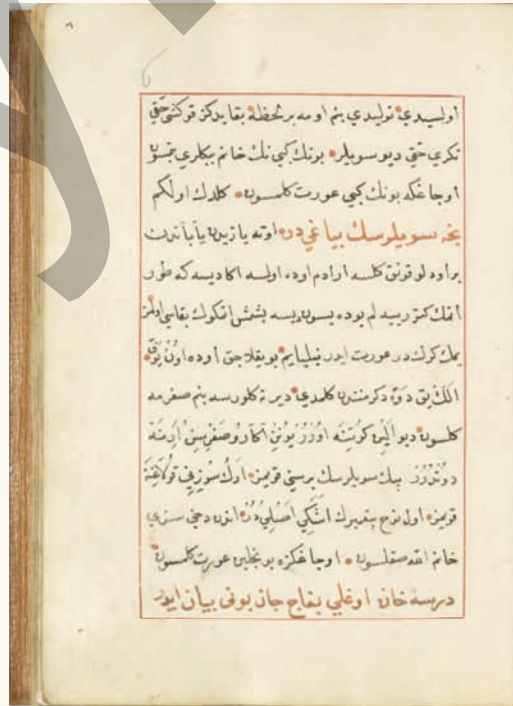 اولسيدي نوليدي بنم اومه بر لحظة بقايدكز قوكشي حقي
تكري حقي ديو سويلر بونك كبي نك خانم ببكلري بتمسون
اوجاغكه بونك كبي عورت كلمسون كلدك اولكم
نجه سويلرسك بياغي در اوته يازيدن يابانندن
بر اودلو قونق كلسه ار ادم اوده اولسه اكا ديسه كه طور
اتمك كتور ييه لم بو ده يسون ديسه بشمش اتمكوك بقاسي اولمز
يمك كرك در عورت ايدر نيليايم بو يقلاجق اوده اون يوق
الك يوق دوه دكرمندن كلمدي دير نه كلورسه بنم صغرمه
كلسون ديو الين كوتنه اورر يونن اكارو صغريسن ارينه
دوندرر بيك سويلرسك برسني قويمز ارك سوزني قولاغنه
قويمز اول نوح پيغمبرك اشكي اصليدر اندن دخي سزي
خانم الله صقلسون اوجاغكزه بونجلين عورت كلمسون
درسه خان اوغلي بغاج جان بوني بيان ايدر